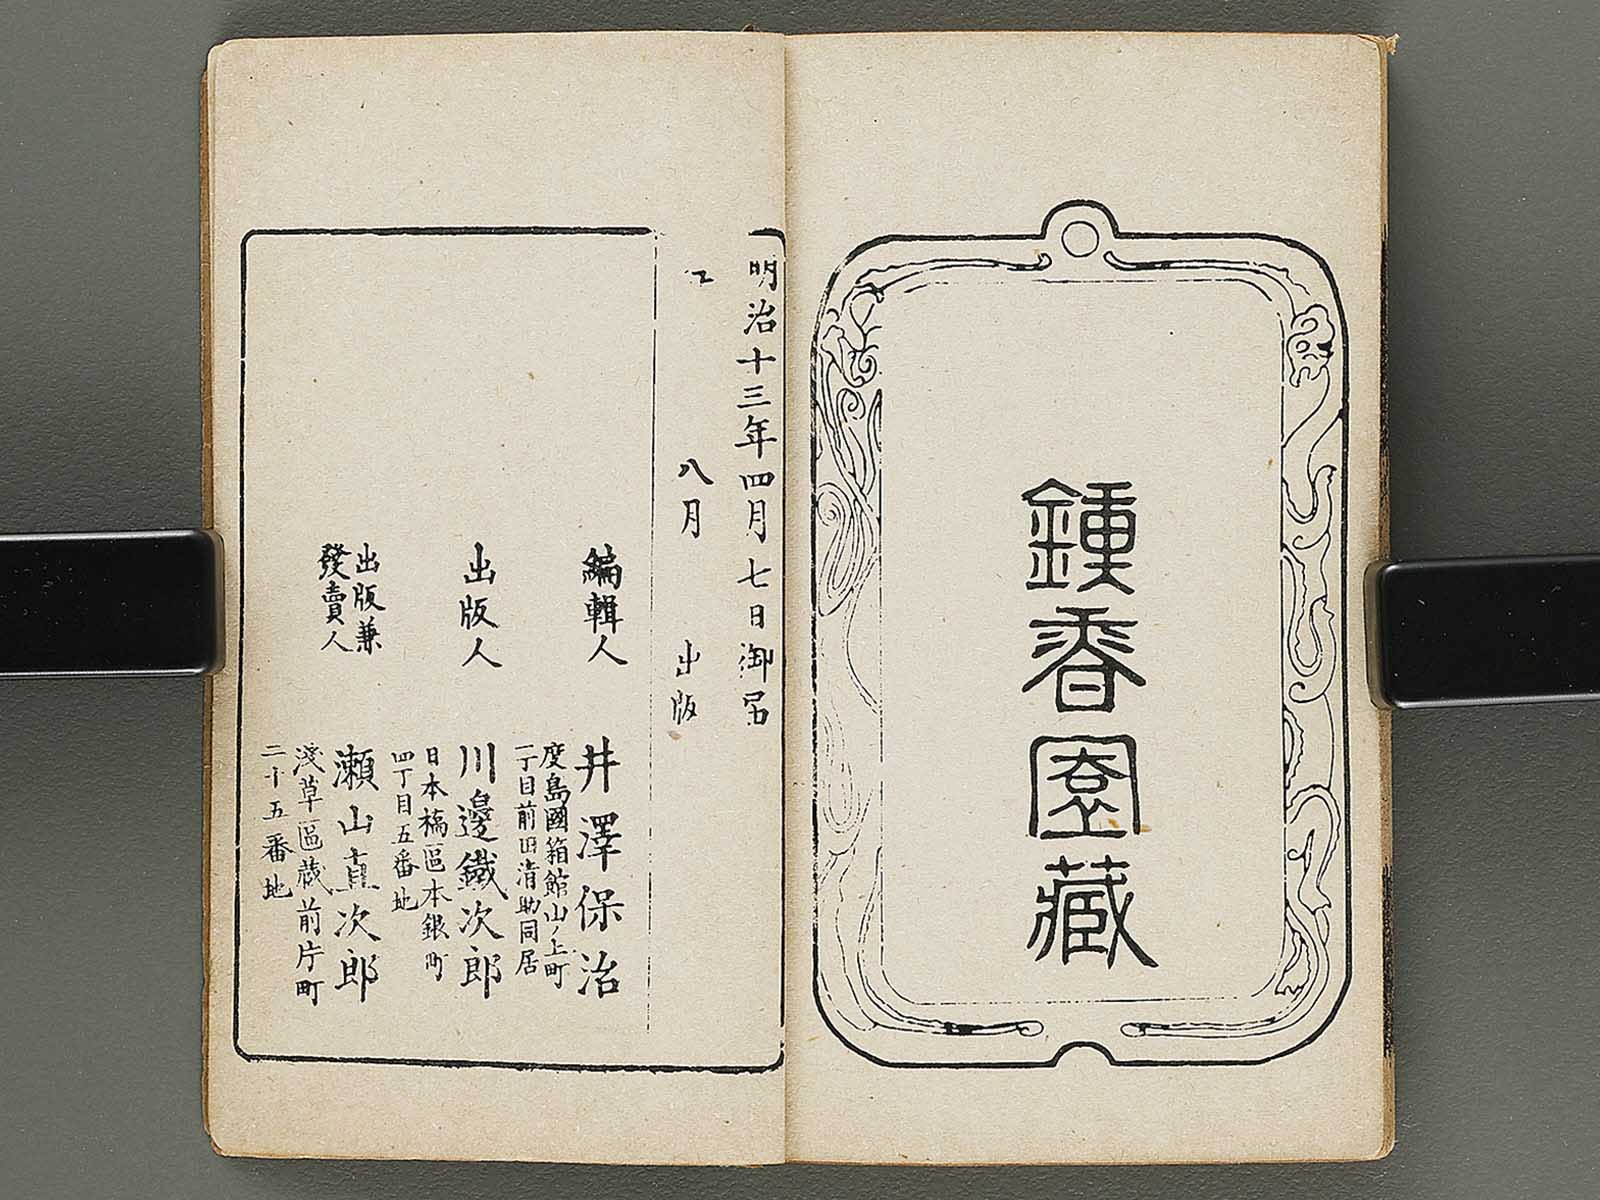 鍾香園藏
明治十三年四月七日御届
仝 八月 出版
編輯人 井澤保治
度島國箱館山ノ上町
一丁目前田清助同居
出版人 川邊鐵次郎
日本橋區本銀町
四丁目五番地
出版兼
發賣人
瀬山直次郎
淺草區蔵前片町
二十五番地